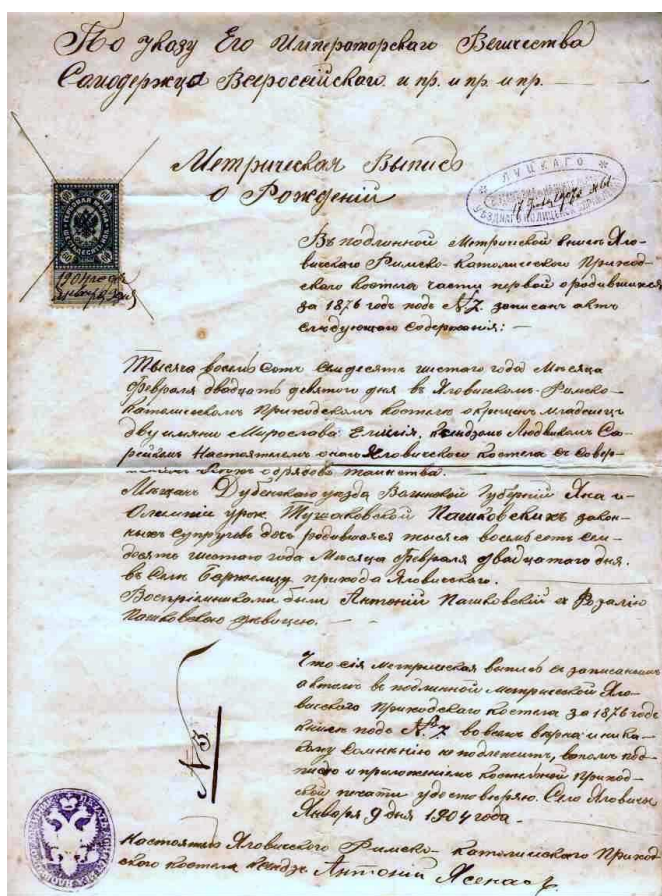 По указу Его Императорскаго Величества
Самодержца Всероссійскаго и пр. и пр. и пр.
Метрическая Выпись
о Рожденій
ЛУЦКАГО
УѢЗДНАГО ПОЛИЦЕЙСК УПРАВЛЕНІЯ
60 60
ГЕРБОВАЯ МАРКА
60 60
Въ подлинной Метрической книгѣ Яло-
вицкаго Римско-Католическаго Приход-
скаго костела части первой о родившихся
за 1876 годъ подъ №7. записанъ актъ
слѣдующаго содержанія: —
Тысяча восемь сотъ семдесятъ шестаго года Мѣсяца
Февраля двадцать девятого дня въ Яловицкомъ Римско-
Католическомъ Приходскомъ костелѣ окрещенъ младенецъ
двумя имяни Мирослава Емилія, Ксендзомъ Людвикомъ Са-
Настоятелемъ онаго Яловицкого костела съ совер-
обрядовъ таинства.
Мѣщанъ Дубенскаго уѣзда Волынской Губерній Яна и
Олимпіи урож. Пашковскихъ закон-
ныхъ супруговъ дочь родившаяся тысяча восемьсотъ сем-
десятъ шестаго года Мѣсяца Февраля двадцатаго дня.
въ Селѣ прихода Яловицкаго.
Воспріемниками были Антоній Пашковскій съ Розалію
Пашковскою дѣвицею.
№ 5
Что сія метрическая выпись съ записаннымъ
актомъ въ подлинной метрической Яло-
вицкаго Приходскаго костела за 1876 годъ
книгѣ подъ №7 во всемъ вѣрна и ника-
кому сомнѣнію не подлежитъ, въ томъ под-
писью и приложеніемъ костельной Приход-
ской печати удостовѣряю. Село Яловичи
Января 9 дня 1904 года.
Настоятель Яловицкаго Римско-католическаго Приход-
скаго костела Ксендзъ Антоній